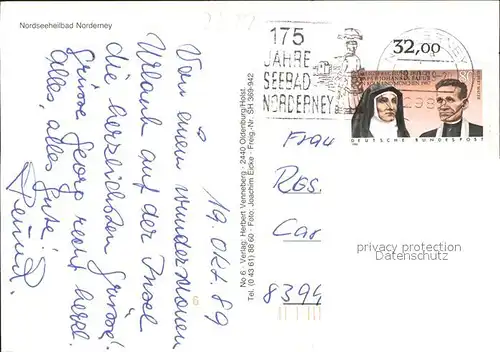 Nordseeheilbad Norderney
19. Okt. 89
Von einem wundervollen
Urlaub auf der Insel
die herzlichsten Grüsse!
Grüsse Georg recht herzl.
Alles, alles Gute!
No 6 · Verlag: Herbert Venneberg · 2440 Oldenburg/Holst.
Tel. (0 43 61) 88 60 · Foto: Joachim Eicke · Freig.-Nr. SH 369-942
175
JAHRE
SEEBAD
NORDERNEY
32,00
NORDERNEY
80
DEUTSCHE BUNDESPOST
Frau
Rgs.
Car
8394
6
privacy protection
Datenschutz